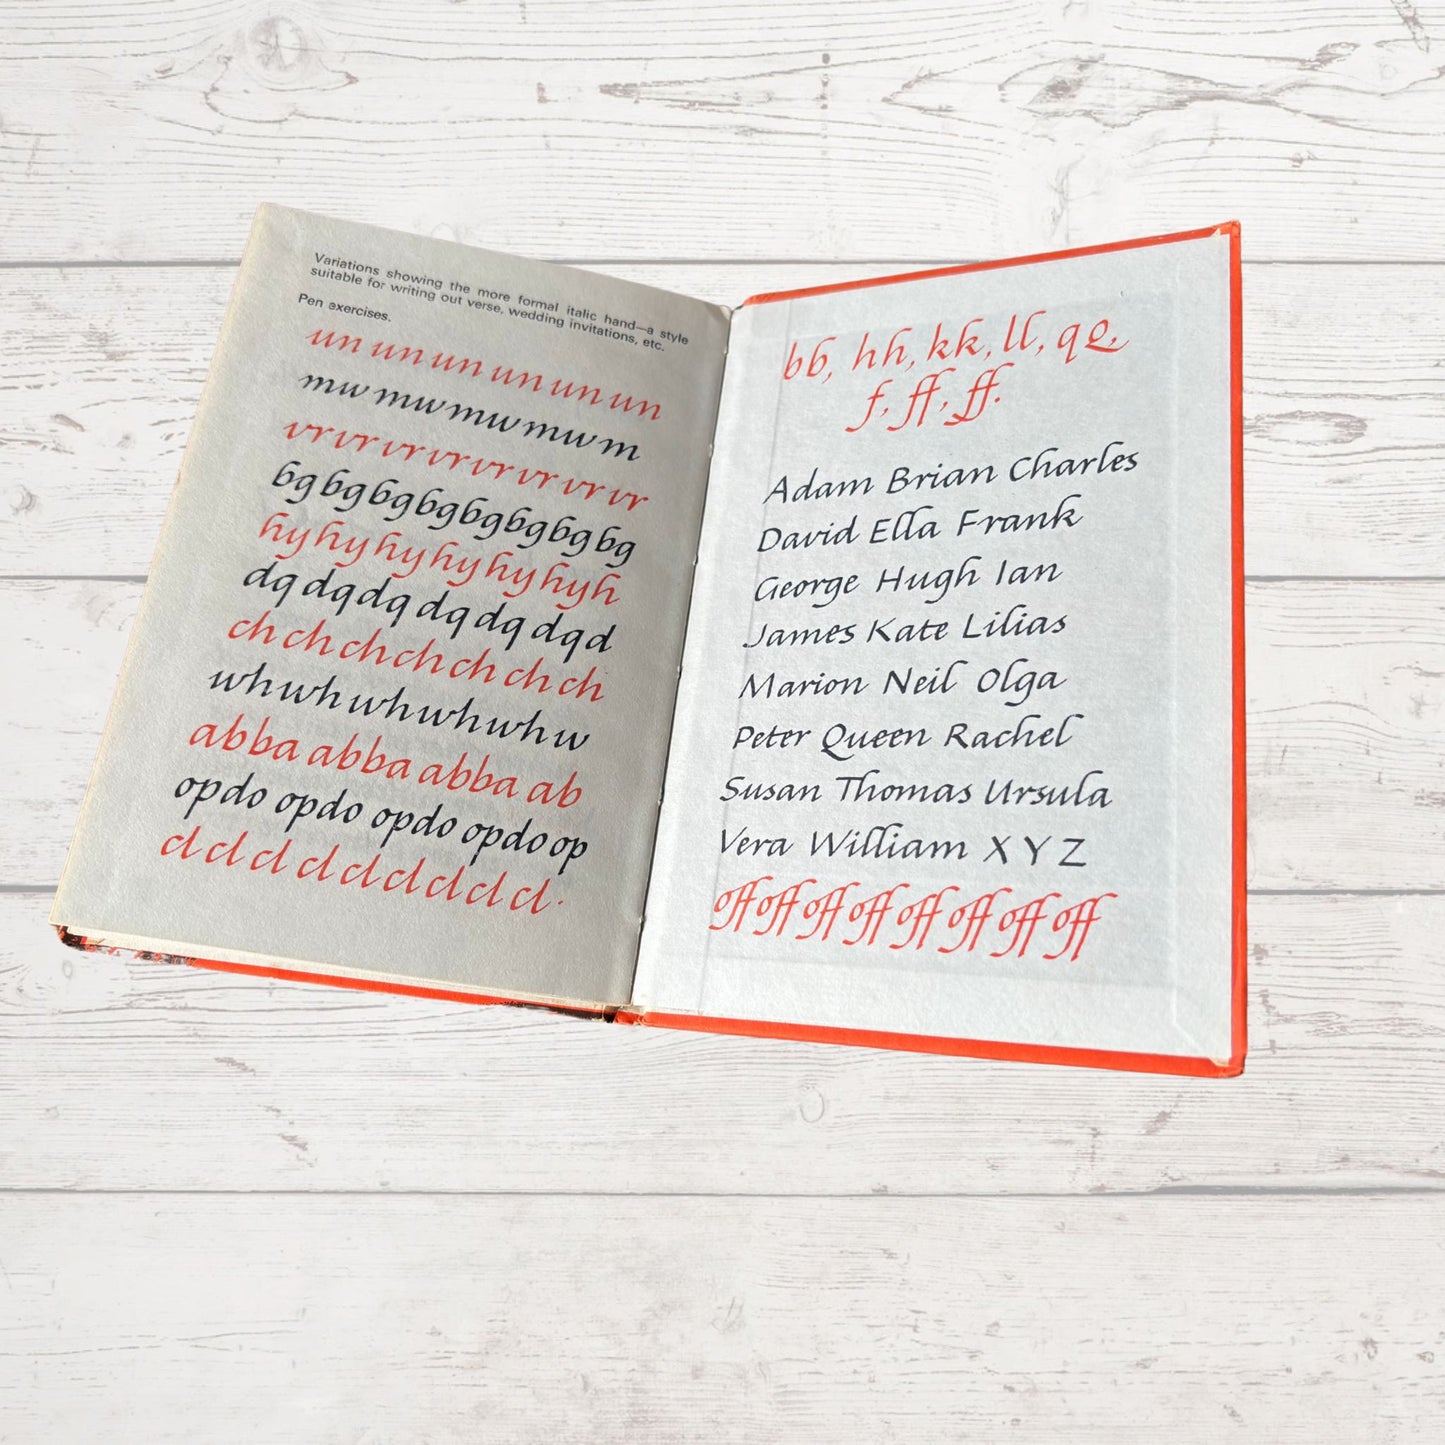 Variations showing the more formal italic hand—a style
suitable for writing out verse, wedding invitations, etc.
Pen exercises.
un un un un un un
mw mw mw mw m
vr vr vr vr vr vr vr vr
bg bg bg bg bg bg bg bg
hy hy hy hy hy hy h
dq dq dq dq dq dq d
ch ch ch ch ch ch ch
wh wh wh wh wh w
abba abba abba ab
opdo opdo opdo opdo op
cl cl cl cl cl cl cl cl cl.
bb, hh, kk, ll, qQ.
f, ff, ff.
Adam Brian Charles
David Ella Frank
George Hugh Ian
James Kate Lilias
Marion Neil Olga
Peter Queen Rachel
Susan Thomas Ursula
Vera William X Y Z
off off off off off off off off